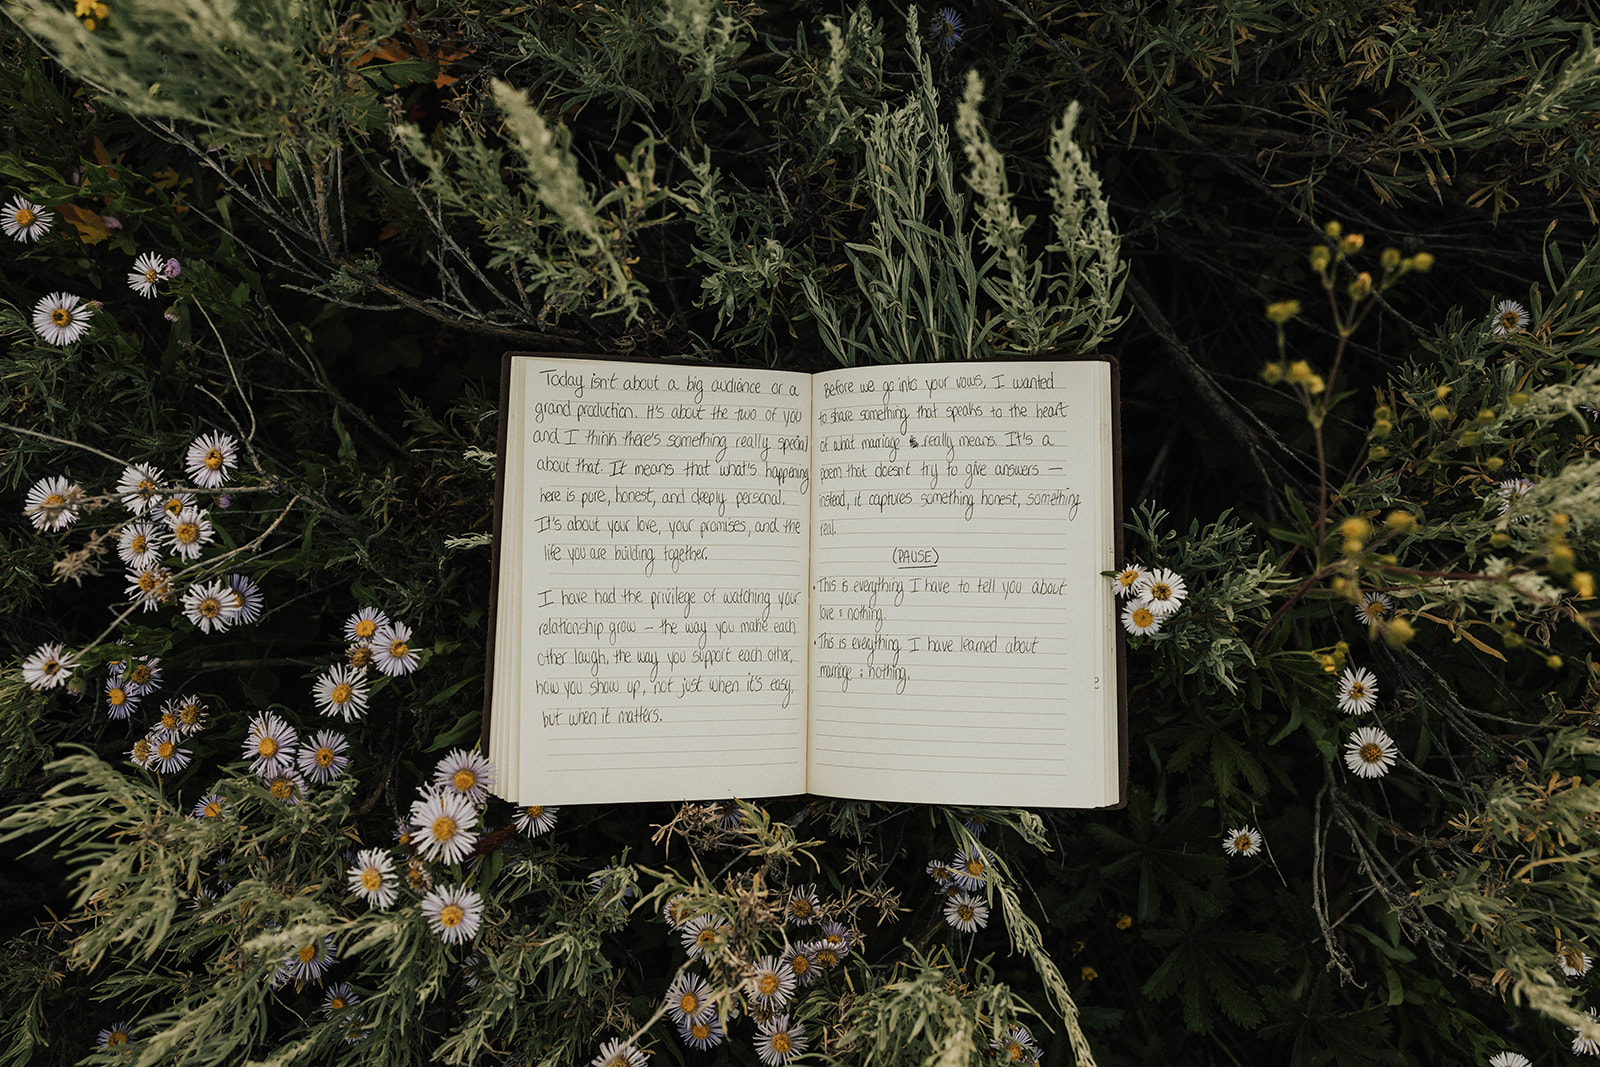 Today isn't about a big audience or a
grand production. It's about the two of you
and I think there's something really special
about that. It means that what's happening
here is pure, honest, and deeply personal.
It's about your love, your promises, and the
life you are building together.
I have had the privilege of watching your
relationship grow — the way you make each
other laugh, the way you support each other,
how you show up, not just when it's easy,
but when it matters.
Before we go into your vows, I wanted
to share something that speaks to the heart
of what marriage really means. It's a
poem that doesn't try to give answers —
instead, it captures something honest, something
real.
(PAUSE)
• This is everything I have to tell you about
love : nothing.
• This is everything I have learned about
marriage : nothing.